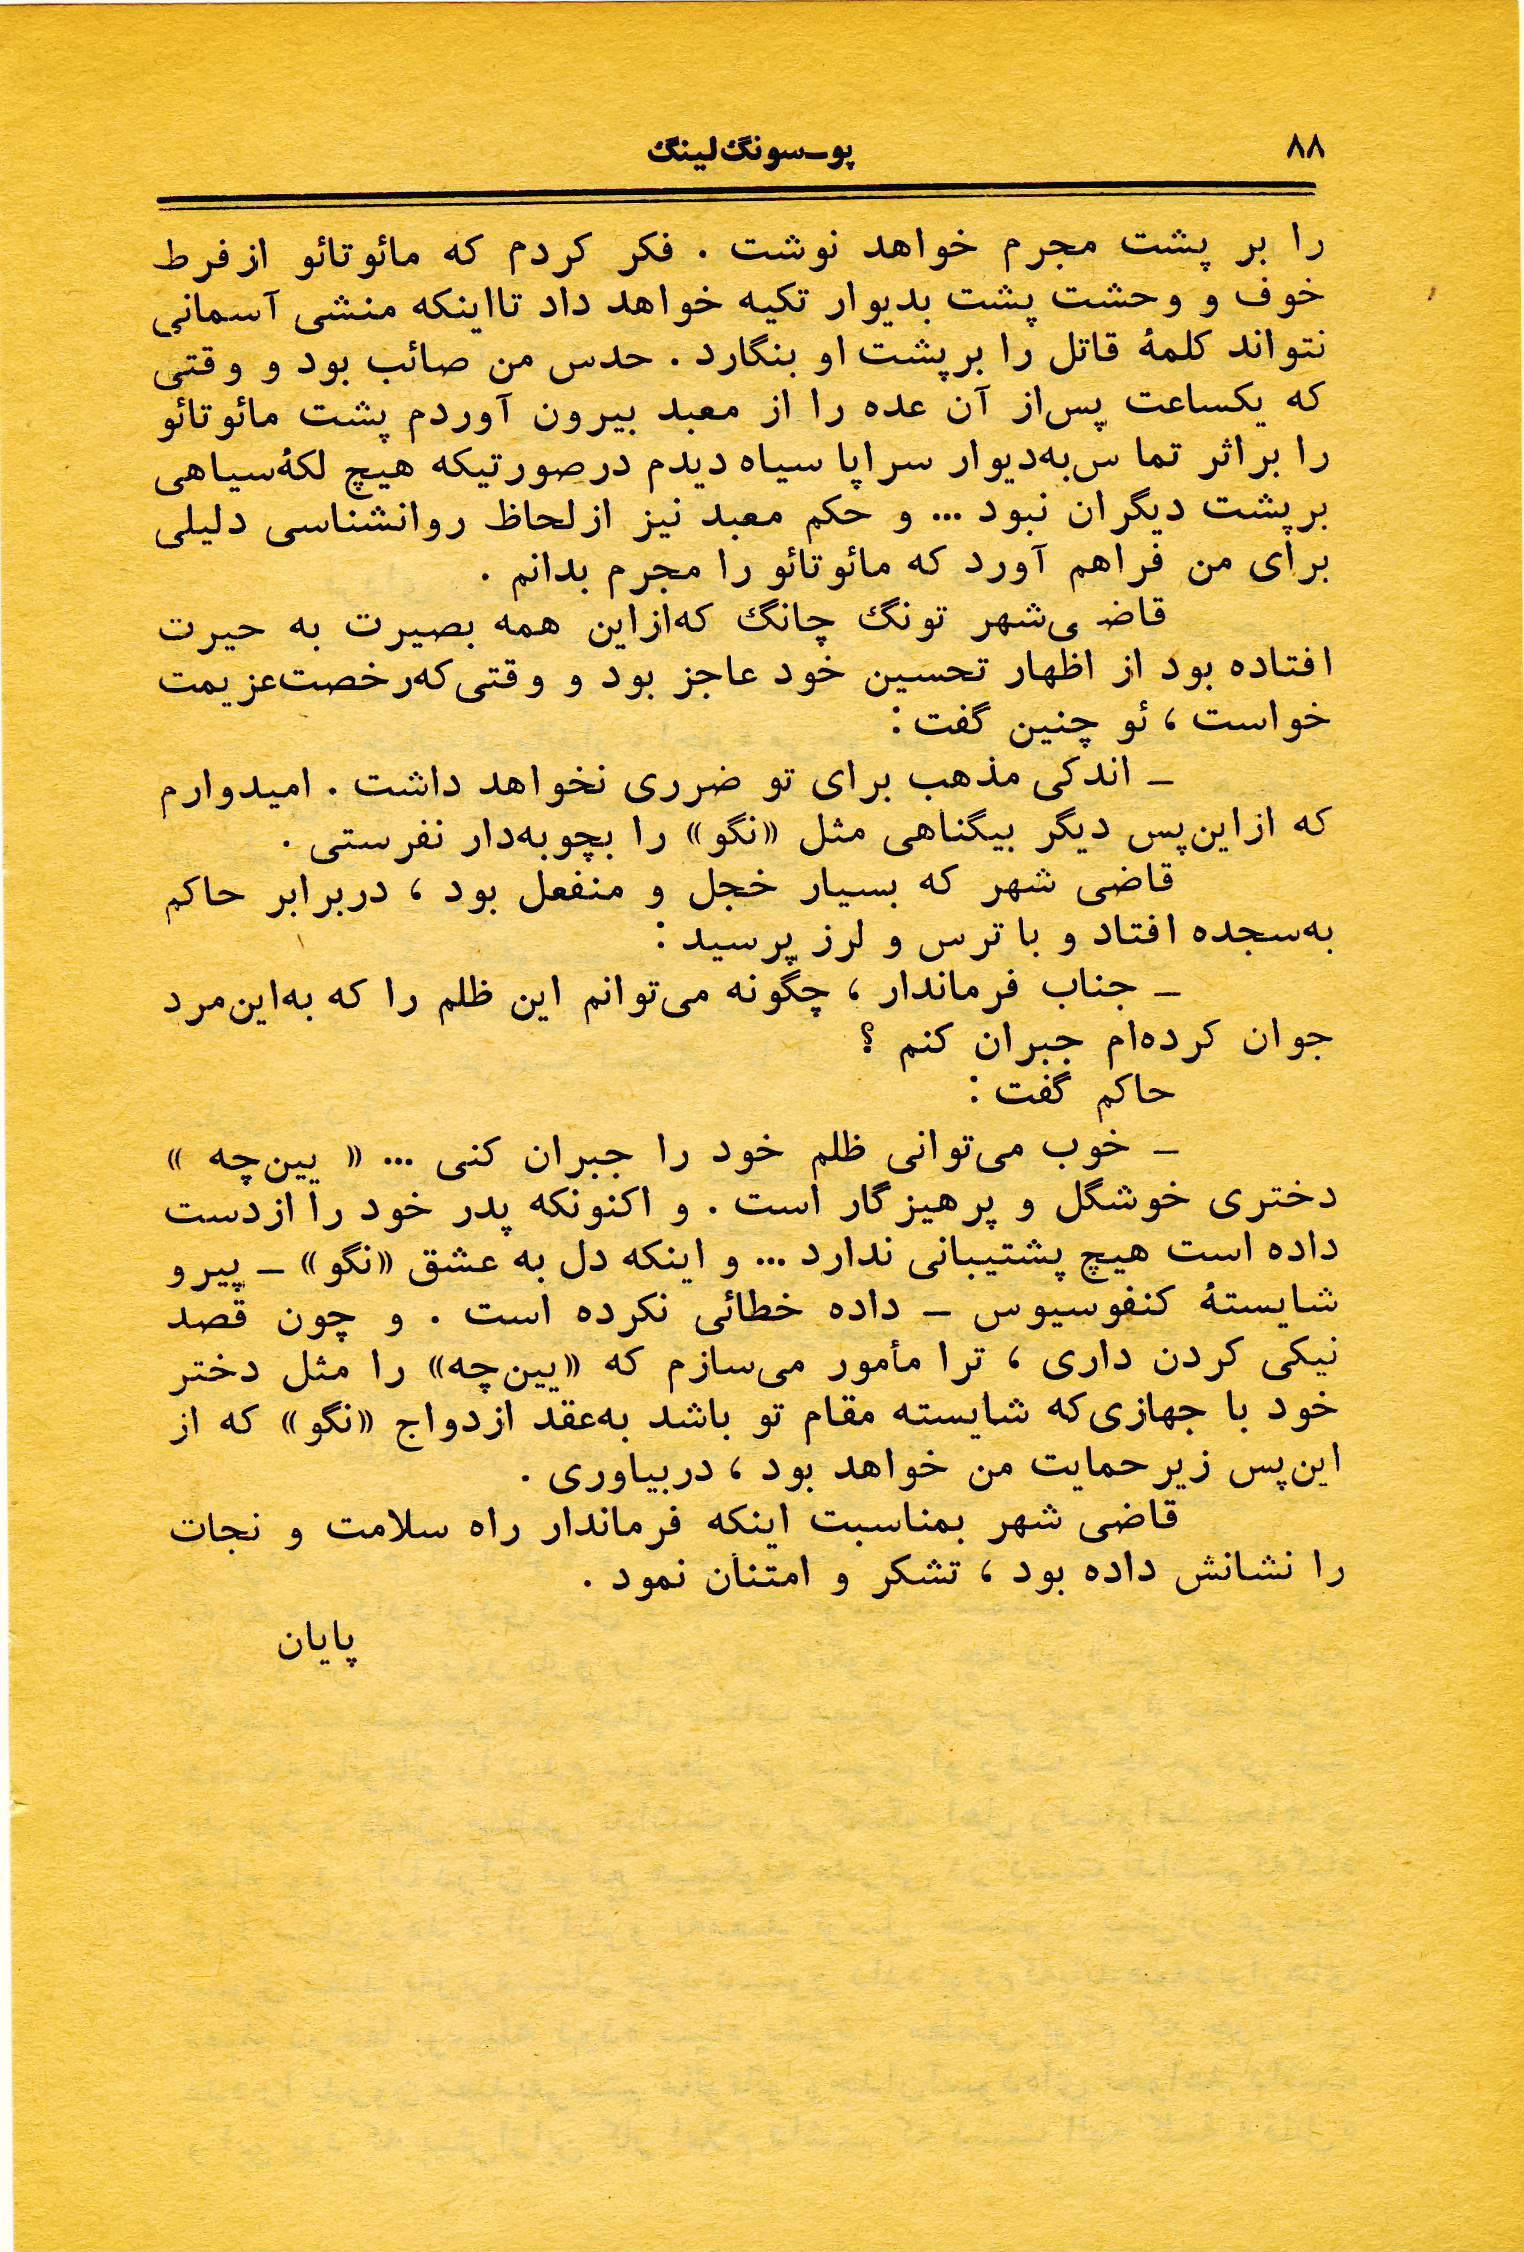 ۸۸
پو ـ سونگ‌لینگ
را بر پشت مجرم خواهد نوشت . فکر کردم که مائوتائو ازفرط
خوف و وحشت پشت بدیوار تکیه خواهد داد تااینکه منشی آسمانی
نتواند کلمهٔ قاتل را برپشت او بنگارد . حدس من صائب بود و وقتی
که یکساعت پس‌از آن عده را از معبد بیرون آوردم پشت مائوتائو
را براثر تماس‌به‌دیوار سراپا سیاه دیدم درصورتیکه هیچ لکهٔ‌سیاهی
برپشت دیگران نبود ... و حکم معبد نیز ازلحاظ روانشناسی دلیلی
برای من فراهم آورد که مائوتائو را مجرم بدانم .
قاضی‌شهر تونگ چانگ که‌ازاین همه بصیرت به حیرت
افتاده بود از اظهار تحسین خود عاجز بود و وقتی‌که‌رخصت‌عزیمت
خواست ، ئو چنین گفت :
ـ اندکی مذهب برای تو ضرری نخواهد داشت . امیدوارم
که ازاین‌پس دیگر بیگناهی مثل «نگو» را بچوبه‌دار نفرستی .
قاضی شهر که بسیار خجل و منفعل بود ، دربرابر حاکم
به‌سجده افتاد و با ترس و لرز پرسید :
ـ جناب فرماندار ، چگونه می‌توانم این ظلم را که به‌این‌مرد
جوان کرده‌ام جبران کنم ؟
حاکم گفت :
ـ خوب می‌توانی ظلم خود را جبران کنی ... « یین‌چه »
دختری خوشگل و پرهیزگار است . و اکنونکه پدر خود را ازدست
داده است هیچ پشتیبانی ندارد ... و اینکه دل به عشق «نگو» ـ پیرو
شایستهٔ کنفوسیوس ـ داده خطائی نکرده است . و چون قصد
نیکی کردن داری ، ترا مأمور می‌سازم که «یین‌چه» را مثل دختر
خود با جهازی‌که شایسته مقام تو باشد به‌عقد ازدواج «نگو» که از
این‌پس زیرحمایت من خواهد بود ، دربیاوری .
قاضی شهر بمناسبت اینکه فرماندار راه سلامت و نجات
را نشانش داده بود ، تشکر و امتنان نمود .
پایان